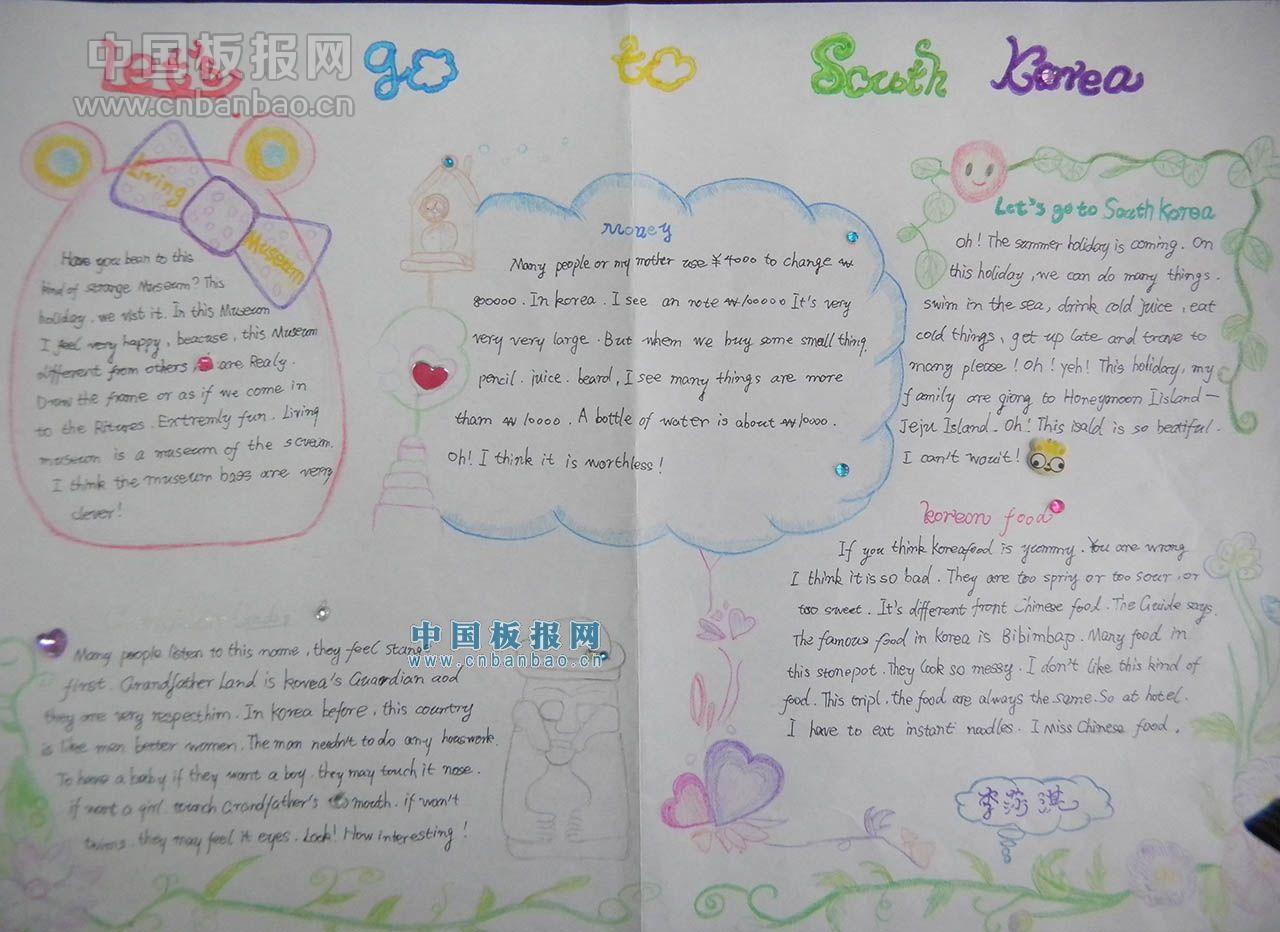 Let's go to South Korea
中国板报网
www.cnbanbao.cn
Living
Museum
Have you bean to this
kind of strange Museum? This
holiday, we vist it. In this Museum
I feel very happy, beacase, this Museum
different from others are Realy.
Draw the frame or as if we come in
to the Ritures. Extremly fun. Living
museum is a museum of the scream.
I think the museum bass are very
clever!
Money
Many people or my mother use ¥4000 to change ₩
800000. In korea. I see an note ₩100000 It's very
very very large. But whem we buy some small thing.
pencil. juice. beard, I see many things are more
tham ₩10000. A bottle of water is about ₩10000.
Oh! I think it is worthless!
Let's go to South Korea
Oh! The summer holiday is coming. On
this holiday, we can do many things.
swim in the sea, drink cold juice, eat
cold things, get up late and trave to
many please! Oh! yeh! This holiday, my
family are giong to Honeymoon Iisland—
Jeju Island. Oh! This isald is so beatiful.
I can't wouit!
korean food
If you think koreafood is yummy. You are wrong
I think it is so bad. They are too spriy or too sour, or
too sweet. It's different front Chinese food. The Guide says.
The famous food in korea is Bibimbap. Many food in
this stonepot. They look so messy. I don't like this kind of
food. This tripl, the food are always the same. So at hotel.
I have to eat instant noodles. I Miss Chinese food.
中国板报网
www.cnbanbao.cn
Many people listen to this name, they feel stange
first. Grandfather Land is korea's Guardian and
they are very respecthim. In korea before, this country
is like men better women. The man needn't to do any houswork.
To have a baby if they want a boy. they may touch it nose.
if want a girl touch Grandfather's mouth. if won't
twins. they may feel it eyes. Look! How interesting!
李莎淇